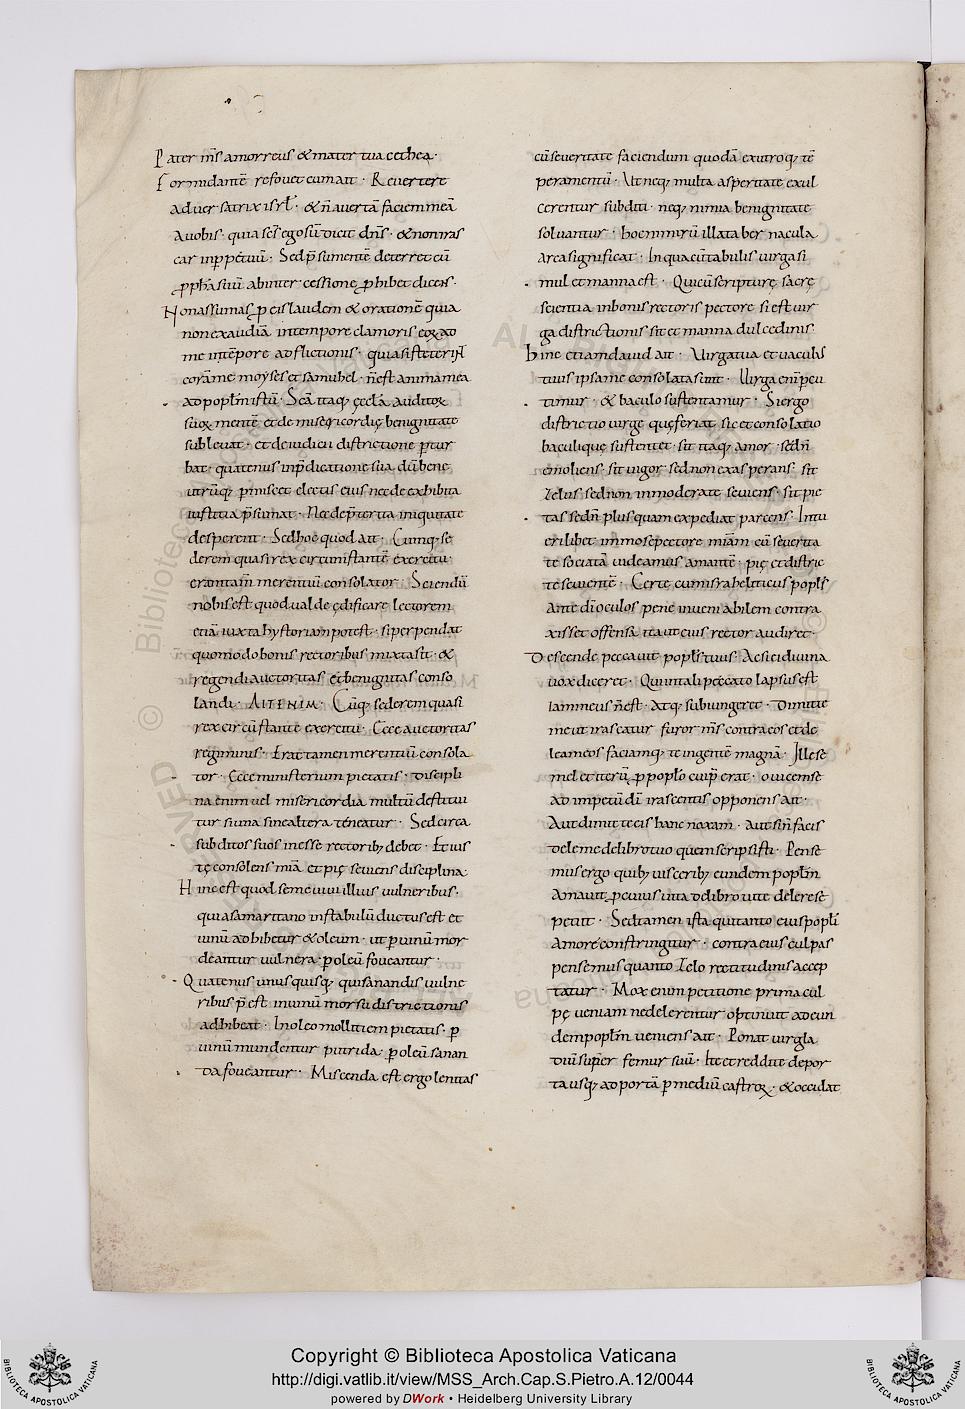 Pater m̅s amorreus & mater tua cethea·
Formidante̅ refouet cum ait· Reuertere
aduersatrix isrł· & n̅ auerta̅ faciem mea̅
a uobis· quia sc̅s ego su̅ dicit dn̅s· & non iras
car in p̲p&uu̅· Sed p̅sumente̅ deterret cu̅
p̲ph&a suu̅ ab int̅cessione p̲hibet dicens·
Non assumas p̲ eis laudem & oratione̅ quia
non exaudia̅ in tempore clamoris eoꝝ ad
me in te̅pore adflictionis· quia si steterĩt
cora̅ me moyses et samuhel· n̅ est anima mea
ad popl̅m istu̅· Sc̅a itaq; ęcl̅a auditoꝝ
suoꝝ mente̅ et de misericordię benignitate
subleuat· et de iudicii districtione p̲tur
bat· quatenus in p̅dicatione sua du̅ bene
utru̅q; p̅miscet electis eius nec de exhibita
iustitia p̅sumat· Nec de p̅terita iniquitate
desperent· Sed hoc quod ait· Cumq; se
derem quasi rex circumstante̅ exercitu·
era̅ tam̅ merentiu̅ consolator· Sciendu̅
nobis est quod ualde ędificare lectorem
etia̅ iuxta hystoriam potest· si perpendat
quomodo bonis rectoribus mixta sit· &
regendi auctoritas et benignitas conso
landi· AIT ENIM· Cu̅q; sederem quasi
rex circu̅stante exercitu· Ecce auctoritas
regiminis· Era̅ tamen merentiu̅ consola
tor· Ecce ministerium pietatis· Discipli
na enim uel misericordia multu̅ destitui
tur si una sine altera teneatur· Sed circa
subditos suos inesse rectorib; debet· Et ius
tę consolens mia̅ et pię seuiens disciplina
Hinc est quod semeuiui illius uulneribus·
qui a samaritano in stabulu̅ ductus est et
uinu̅ adhibetur & oleum· ut p̲ uinu̅ mor
deantur uulnera· p̲ oleu̅ foueantur·
Quatenus unusquisq; qui sanandis uulne
ribus p̅est in uinu̅ morsu districtionis
adhibeat· In oleo mollitiem pietatis· p̲
uinu̅ mundentur putrida· p̲ oleu̅ sanan
da foueantur· Miscenda est ergo lenitas
cu̅ seueritate faciendum quoda̅ ex utroq; te̅
peramentu̅· Ut neq; multa asperitate exul
cerentur subditi· neq; nimia benignitate
soluantur· hoc nimiru̅ illa tabernacula
arca significat· In qua cu̅ tabulis uirga si
mul et manna est· Quicu̅ scripturę sacrę
scientia in bonis rectoris pectore si est uir
ga districtionis sit et manna dulcedinis·
hinc etiam dauid ait· Uirga tua et baculus
tuus ipsa me consolata sunt· Uirga eni̅ p̲cu
timur· & baculo sustentamur· Si ergo
districtio uirgę quę feriat sic et consolatio
baculi quę sustentet· sit itaq; amor· sed n̅
emoliens· sit uigor sed non exasperans· sit
zelus sed non inmoderate seuiens· sit pie
tas sed n̅ plusquam expediat parcens· Intu
eri libet in mosę pectore mia̅m cu̅ seuerita
te sociata̅ uideamus amante̅ pię et distric
te seuiente̅· Certe cum israheliticus popl̅s
ante di̅ oculos pene inueniabilem contra
xisset offensa̅ ita ut eius rector audiret·
Descende peccauit popl̅s tuus· Ac si ei diuina
uox diceret· Qui in tali peccato lapsus est
iam meus n̅ est· Atq; subiungeret· Dimitte
me ut irascatur furor m̅s contra eos et de
leam eos faciamq; te in gente̅ magna̅· Ille se
mel et iteru̅ p̲ popl̅o cui p̅erat· ouicem se
ad impetu̅ di̅ irascentis opponens ait·
Aut dimitte eis hanc noxam· aut si n̅ facis
dele me de libro tuo quem scripsisti· Pense
mus ergo quib; uiscerib; eundem popl̅m
amauit p̲ cuius uita de libro uite delere se
petiit· Sed tamen iste qui tanto eius popl̅i
amore constringitur· contra eius culpas
pensemus quanto zelo rectitudinis accep
tatur· Mox enim petitione prima cul
pę ueniam ne delerentur optinuit ad eun
dem popl̅m ueniens ait· Ponat uir gla
diu̅ super femur suu̅· Ite et reddite de por
ta usq; ad porta̅ p̲ mediu̅ castroꝝ· & occidat
Copyright © Biblioteca Apostolica Vaticana
http://digi.vatlib.it/view/MSS_Arch.Cap.S.Pietro.A.12/0044
powered by DWork • Heidelberg University Library